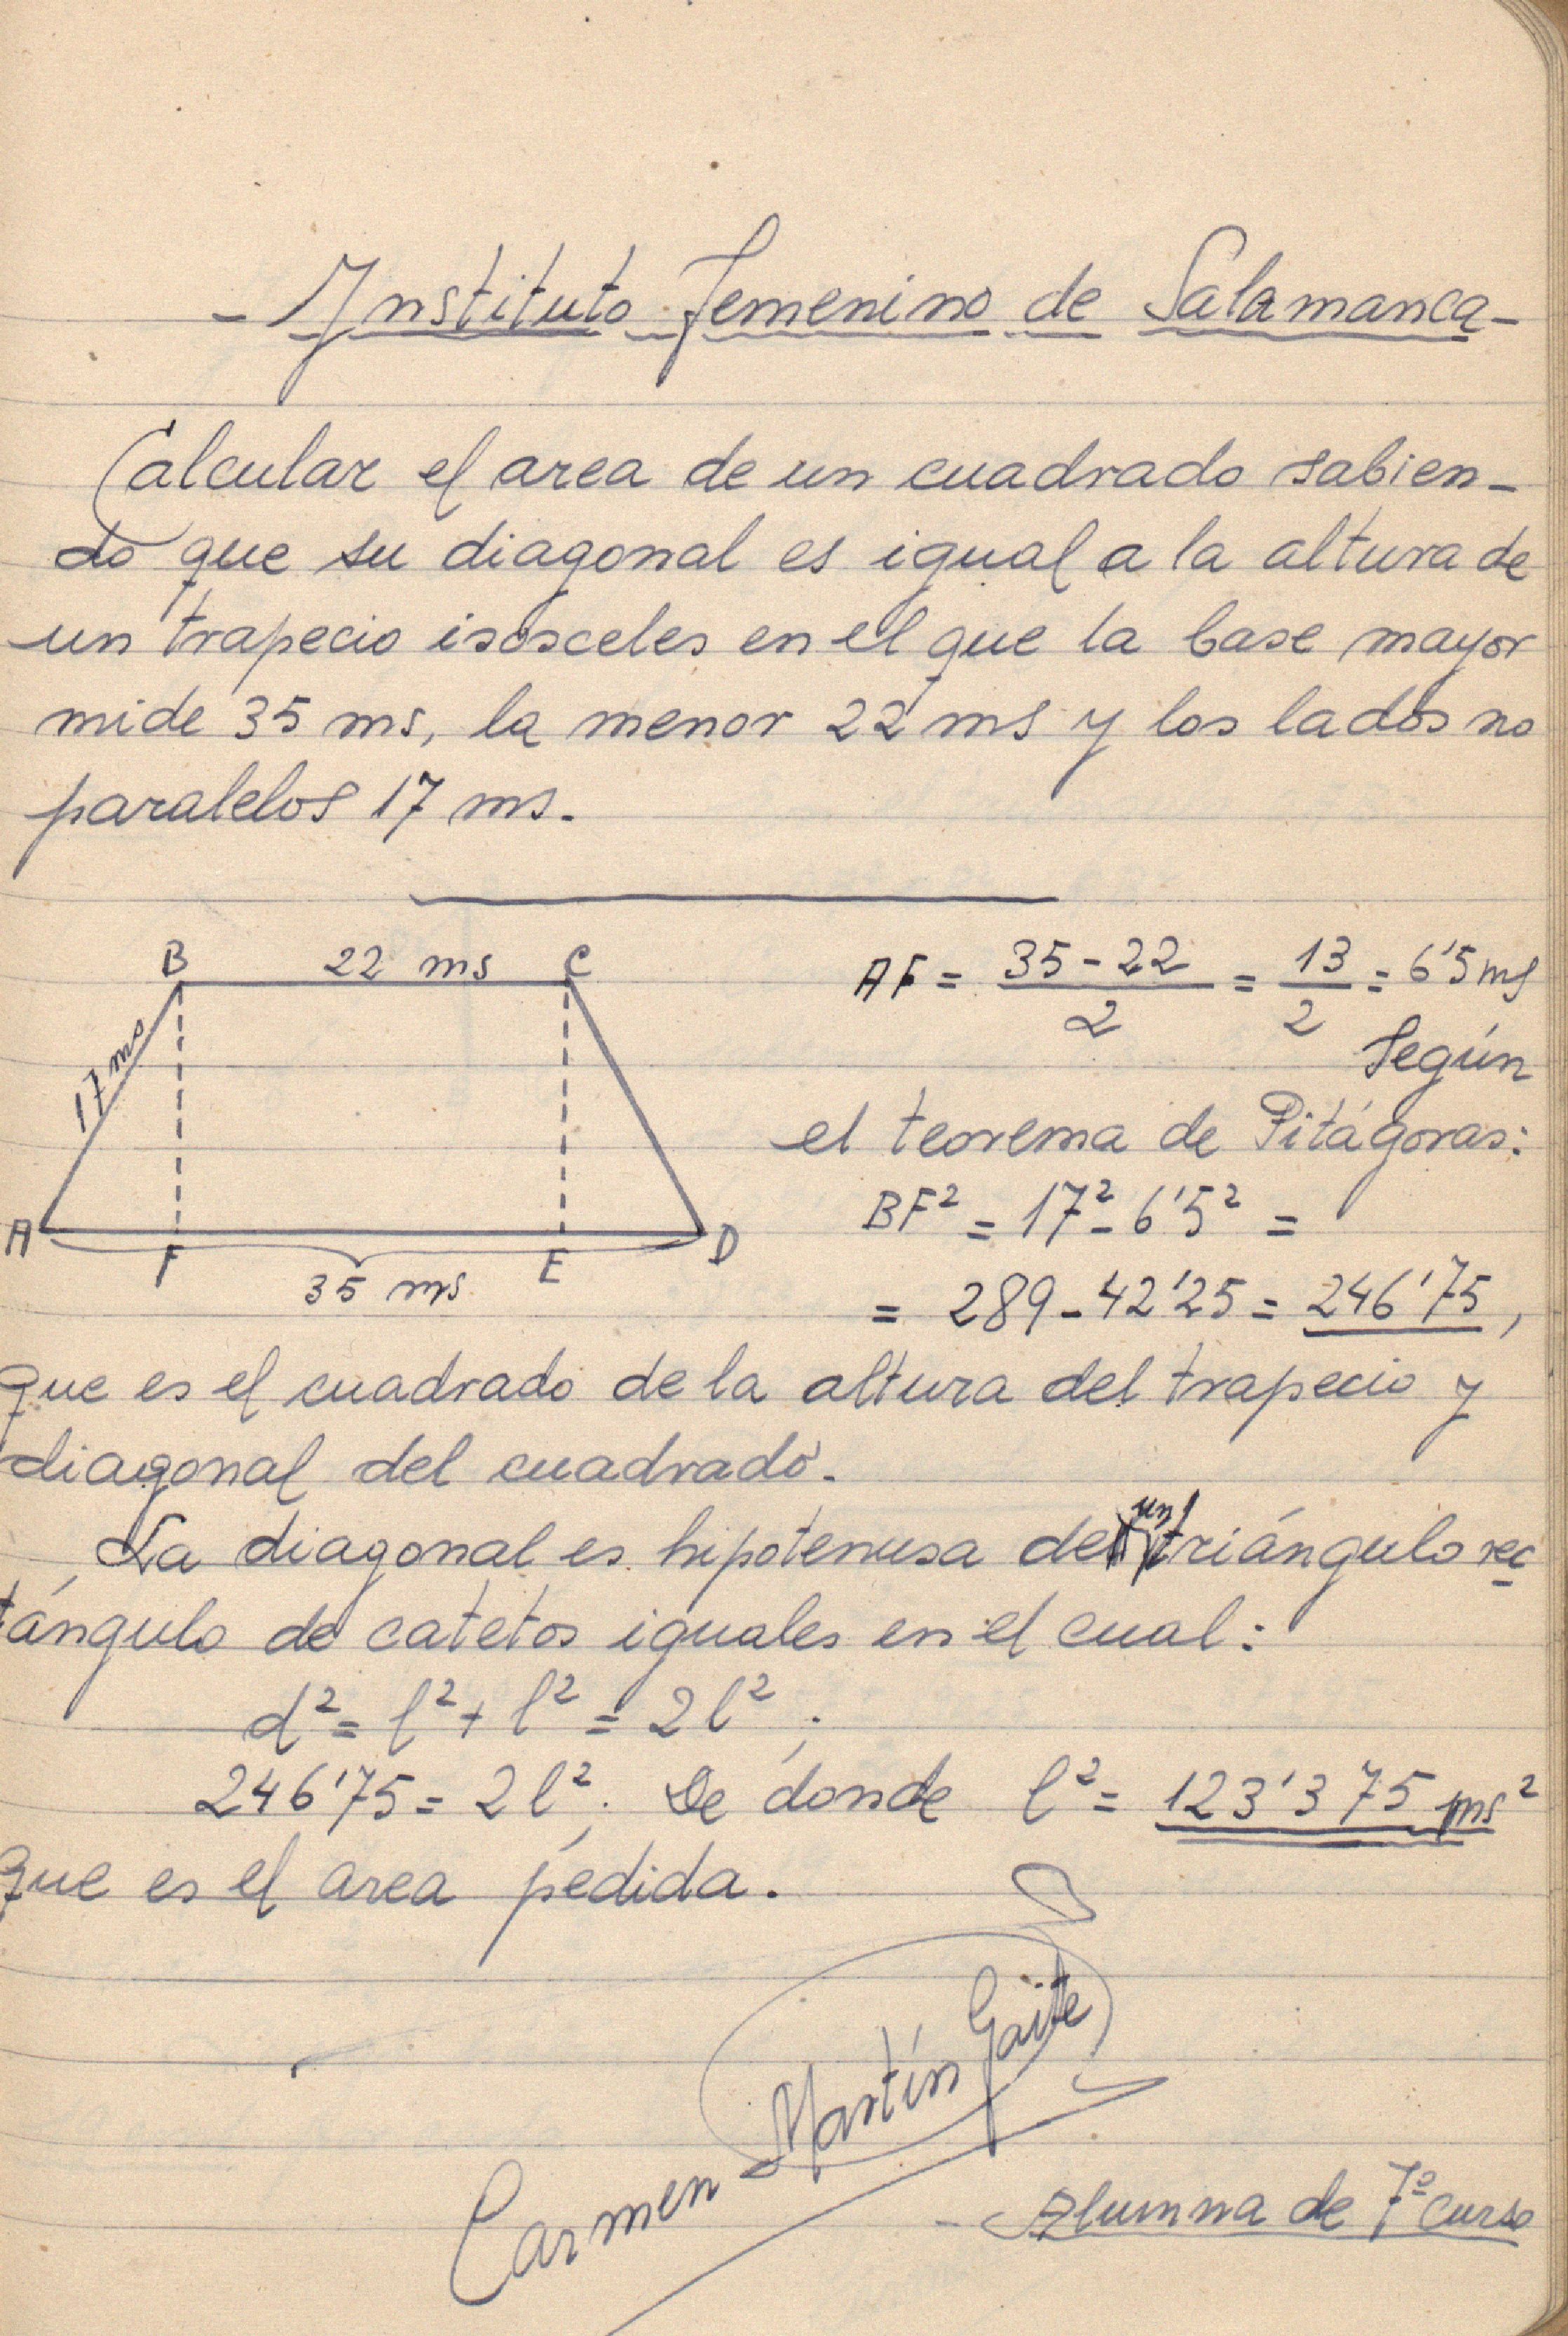 - Instituto Femenino de Salamanca -
Calcular el area de un cuadrado sabien-
do que su diagonal es igual a la altura de
un trapecio isósceles en el que la base mayor
mide 35 ms, la menor 22 ms y los lados no
paralelos 17 ms.
B 22 ms C
17 ms
A F E D
35 ms
AF = 35 - 22 / 2 = 13 / 2 = 6'5 ms
Según
el teorema de Pitágoras:
BF² = 17² - 6'5² =
= 289 - 42'25 = 246'75,
que es el cuadrado de la altura del trapecio y
diagonal del cuadrado.
La diagonal es hipotenusa de un triángulo rec
tángulo de catetos iguales en el cual:
d² = l² + l² = 2l²;
246'75 = 2l²; De donde l² = 123'375 ms²
que es el area pedida.
Carmen Martín Gaite
- Alumna de 7º curso